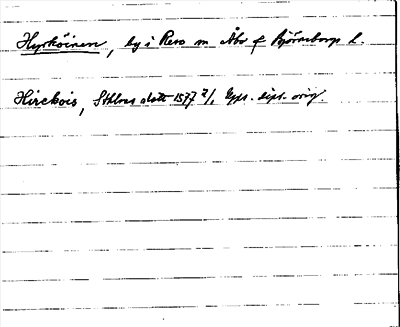 Hyrköinen, by i Reso sn Åbo o Björneborgs l.
Hirckois, Sthlms slott 1577 7/1 Eggr. dipl. orig.